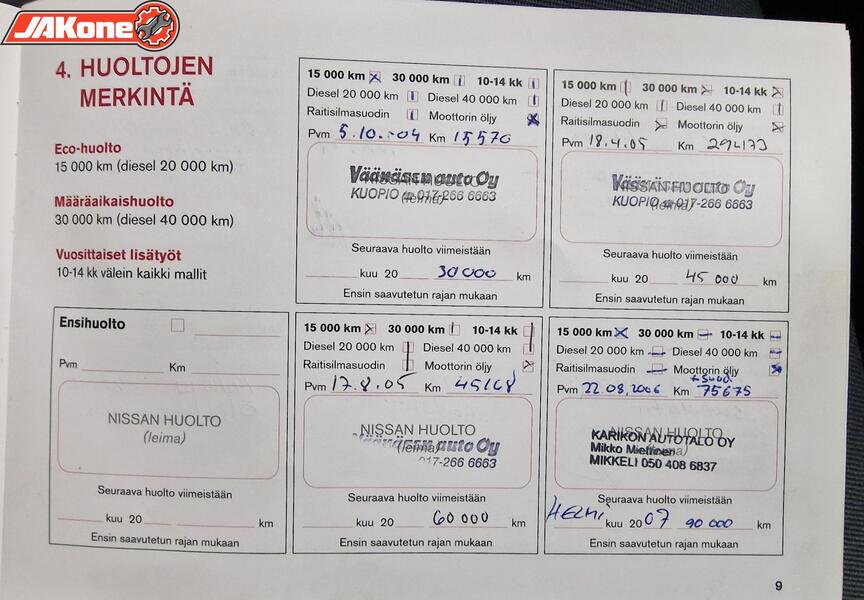 JAKone
4. HUOLTOJEN
MERKINTÄ
Eco-huolto
15 000 km (diesel 20 000 km)
Määräaikaishuolto
30 000 km (diesel 40 000 km)
Vuosittaiset lisätyöt
10-14 kk välein kaikki mallit
15 000 km 30 000 km 10-14 kk
Diesel 20 000 km Diesel 40 000 km
Raitisilmasuodin Moottorin öljy
Pvm 5.10.-04 Km 15570
Väänäsen auto Oy
NISSAN HUOLTO
KUOPIO 017-266 6663
(leima)
Seuraava huolto viimeistään
kuu 20 30000 km
Ensin saavutetun rajan mukaan
15 000 km 30 000 km 10-14 kk
Diesel 20 000 km Diesel 40 000 km
Raitisilmasuodin Moottorin öljy
Pvm 18.4.05 Km 294173
Väänäsen auto Oy
NISSAN HUOLTO
KUOPIO 017-266 6663
(leima)
Seuraava huolto viimeistään
kuu 20 45 000 km
Ensin saavutetun rajan mukaan
Ensihuolto
Pvm Km
NISSAN HUOLTO
(leima)
Seuraava huolto viimeistään
kuu 20 km
Ensin saavutetun rajan mukaan
15 000 km 30 000 km 10-14 kk
Diesel 20 000 km Diesel 40 000 km
Raitisilmasuodin Moottorin öljy
Pvm 17.8.05 Km 45168
NISSAN HUOLTO
Väänäsen auto Oy
(leima)
017-266 6663
Seuraava huolto viimeistään
kuu 20 60 000 km
Ensin saavutetun rajan mukaan
15 000 km 30 000 km 10-14 kk
Diesel 20 000 km Diesel 40 000 km
Raitisilmasuodin Moottorin öljy
Pvm 22.08.2006 Km 75675
NISSAN HUOLTO
KARIKON AUTOTALO OY
Mikko Miettinen
(leima)
MIKKELI 050 408 6837
Seuraava huolto viimeistään
HELMI kuu 2007 90 000 km
Ensin saavutetun rajan mukaan
9